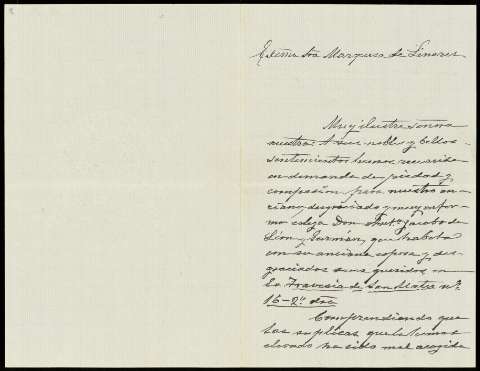 Exma Sra Marquesa de Linares
Muy ilustre señora
nuestra: A sus nobles y bellos
sentimientos hemos
en demanda de piedad y
compasión para nuestro an-
ciano, desgraciado y muy enfer-
mo colega Don Jacobo de
León y Guzmán, que habita
con su anciana esposa y des-
graciados seres queridos en
la Travesía de San Mateo nº
16-2º dra
Comprendiendo que
las suplicas que la hemos
elevado ha sido mal acogida